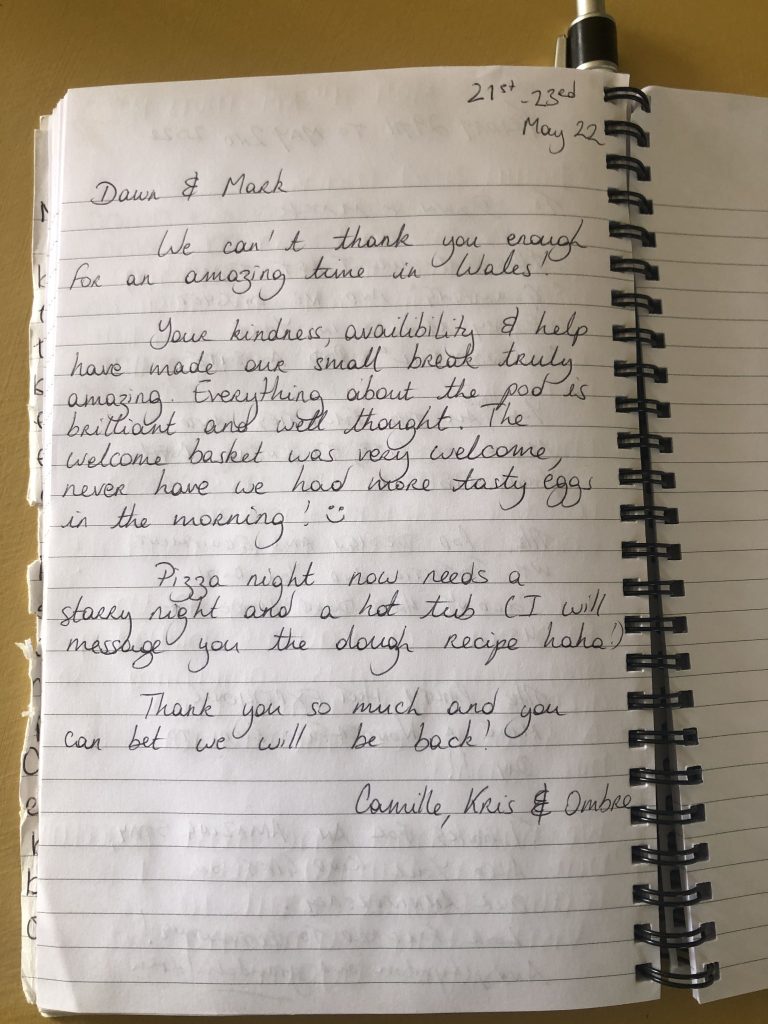 21st - 23ed
May 22
Dawn & Mark
We can't thank you enough
for an amazing time in Wales!
Your kindness, availibility & help
have made our small break truly
amazing. Everything about the pod is
brilliant and well thought. The
welcome basket was very welcome,
never have we had more tasty eggs
in the morning! :)
Pizza night now needs a
starry night and a hot tub (I will
message you the dough recipe haha!)
Thank you so much and you
can bet we will be back!
Camille, Kris & Ombre